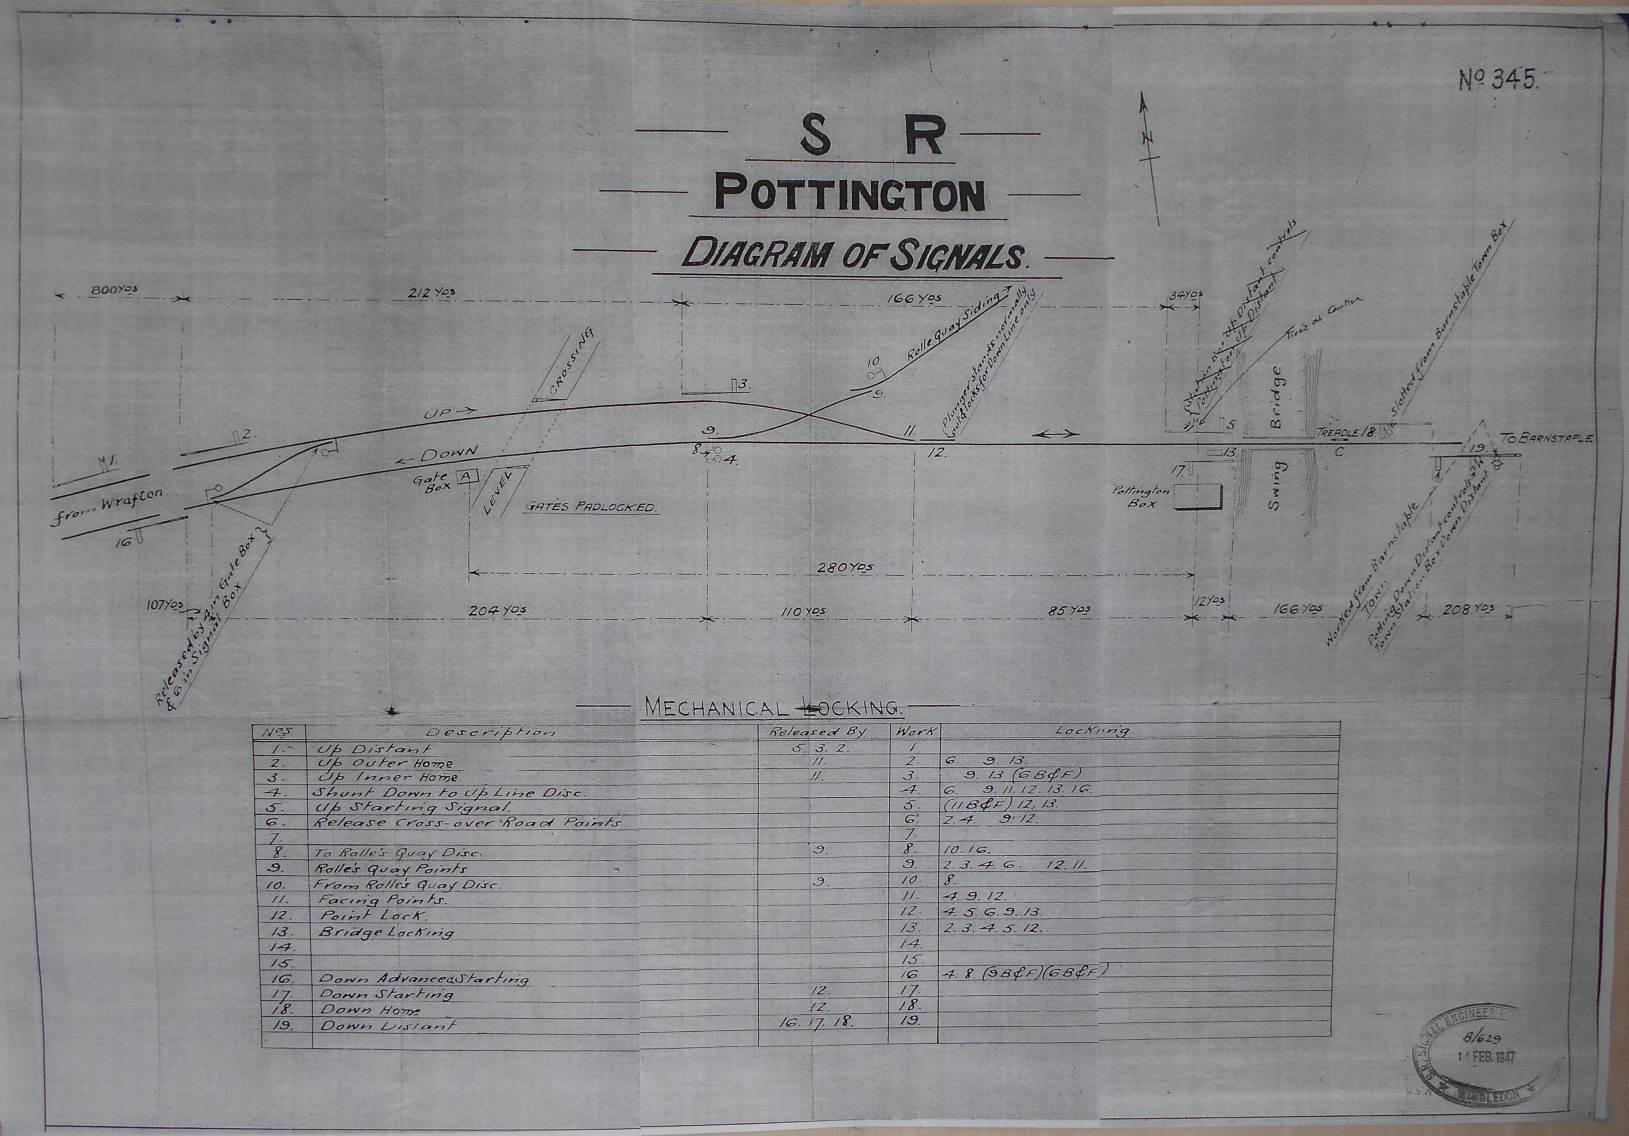 Nº 345.
S R
POTTINGTON
DIAGRAM OF SIGNALS.
N
800 YDS
212 YDS
166 YDS
34 YDS
Rolle Quay Siding
Plunger stands normally
out & locks for Down Line only
Up Distant controls
Pottington Up Distant
Slotted from Barnstable Town Box
CROSSING
UP →
1.
2.
3.
10
9.
9.
8.
4.
11.
12.
5
13.
TREADLE
18
C
19.
TO BARNSTAPLE
Bridge
Swing
← DOWN
Gate
Box
A
LEVEL
GATES PADLOCKED.
from Wrafton
16
17.
Pottington
Box
Released by A in Gate Box
& 6 in Signal Box
Worked from Barnstable
Town
Pottington Down Distant controls
Town Station Box Down Distant
280 YDS
107 YDS
204 YDS
110 YDS
85 YDS
12 YDS
166 YDS
208 YDS
MECHANICAL LOCKING.
Nos Description Released By Work Locking
1. Up Distant 5. 3. 2. 1
2. Up Outer Home 11. 2. 6 9. 13.
3. Up Inner Home 11. 3. 9. 13 (6 B&F)
4. Shunt Down to Up Line Disc. 4. 6. 9. 11. 12. 13. 16.
5. Up Starting Signal. 5. (11 B&F) 12, 13.
6. Release Cross-over Road Points 6. 2. 4. 9. 12.
7. 7.
8. To Rolle's Quay Disc. 9. 8. 10. 16.
9. Rolle's Quay Points 9. 2. 3. 4. 6. 12. 11.
10. From Rolle's Quay Disc. 9. 10. 8.
11. Facing Points. 11. 4. 9. 12.
12. Point Lock. 12. 4. 5. 6. 9. 13.
13. Bridge Locking 13. 2. 3. 4. 5. 12.
14. 14.
15. 15.
16. Down Advanced Starting 16 4. 8. (9 B&F) (6 B&F)
17. Down Starting 12. 17.
18. Down Home 12. 18.
19. Down Distant 16. 17. 18. 19.
S.R. SIGNAL ENGINEER
B/629
14 FEB. 1947
WIMBLEDON